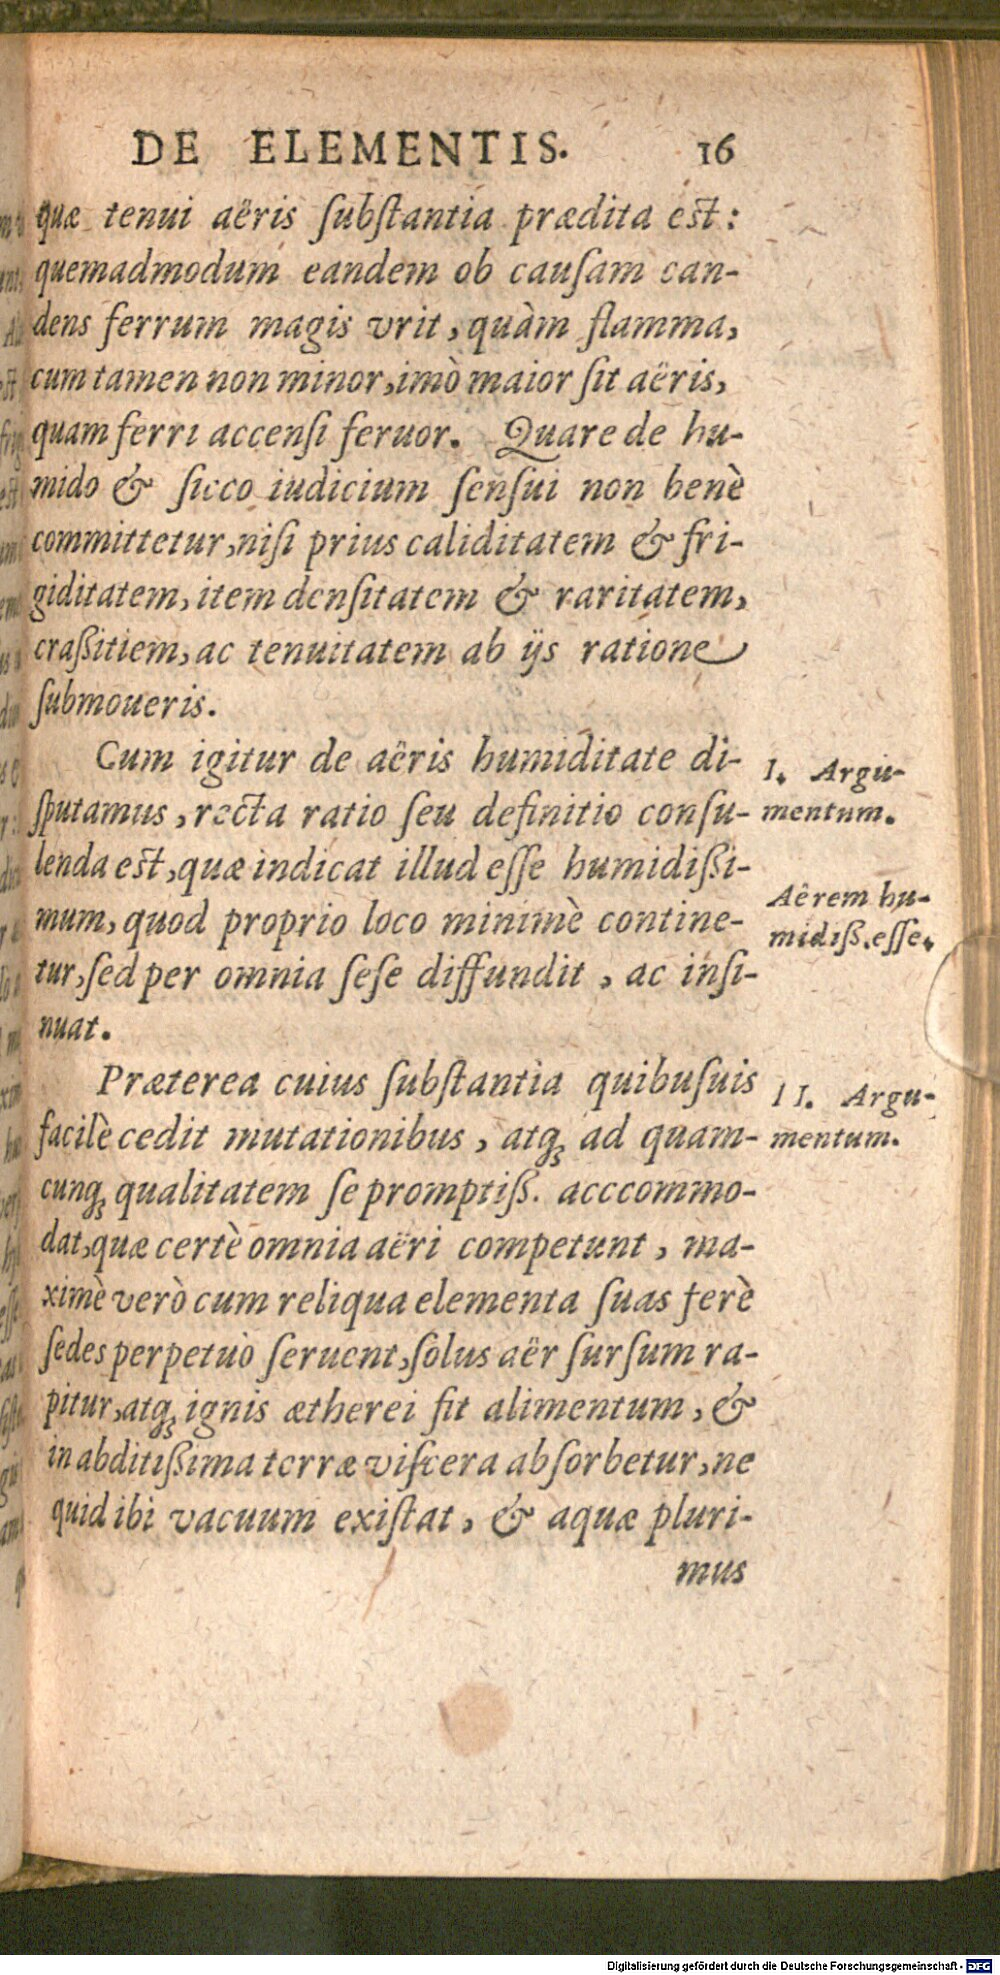 DE ELEMENTIS. 16
quæ tenui aëris ſubſtantia prædita eſt:
quemadmodum eandem ob cauſam can-
dens ferrum magis vrit, quàm flamma,
cum tamen non minor, imò maior ſit aëris,
quam ferri accenſi feruor. Quare de hu-
mido & ſicco iudicium ſenſui non benè
committetur, niſi prius caliditatem & fri-
giditatem, item denſitatem & raritatem,
craßitiem, ac tenuitatem ab ijs ratione
ſubmoueris.
Cum igitur de aëris humiditate di-
ſputamus, recta ratio ſeu definitio conſu-
lenda eſt, quæ indicat illud eſſe humidißi-
mum, quod proprio loco minimè contine-
tur, ſed per omnia ſeſe diffundit, ac inſi-
nuat.
I. Argu-
mentum.
Aërem hu-
midiß. eſſe.
Præterea cuius ſubſtantia quibuſuis
facilè cedit mutationibus, atqꝫ ad quam-
cunqꝫ qualitatem ſe promptiß. acccommo-
dat, quæ certè omnia aëri competunt, ma-
ximè verò cum reliqua elementa ſuas ferè
ſedes perpetuò ſeruent, ſolus aër ſurſum ra-
pitur, atqꝫ ignis ætherei fit alimentum, &
in abditißima terræ viſcera abſorbetur, ne
quid ibi vacuum exiſtat, & aquæ pluri-
mus
II. Argu-
mentum.
Digitalisierung gefördert durch die Deutsche Forschungsgemeinschaft - DFG